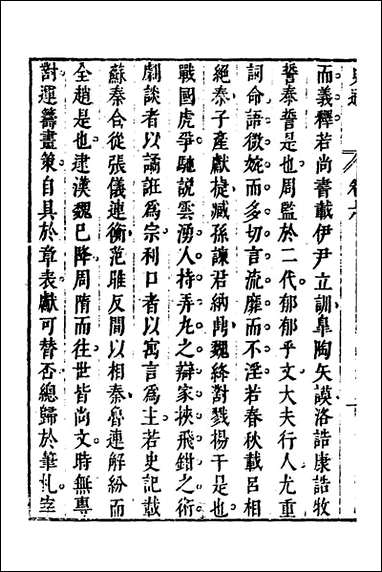 史通 卷六
而義釋若尚書載伊尹立訓臯陶矢謨洛誥康誥牧
誓泰誓是也周監於二代郁郁乎文大夫行人尤重
詞命語微婉而多切言流靡而不淫若春秋載呂相
絶秦子產獻捷臧孫諫君納鼎魏絳對戮楊干是也
戰國虎爭馳說雲湧人持弄丸之辯家挾飛鉗之術
劇談者以譎誑爲宗利口者以寓言爲主若史記載
蘇秦合從張儀連衡范雎反間以相秦魯連解紛而
全趙是也逮漢魏已降周隋而往世皆尚文時無專
對運籌畫策自具於章表獻可替否總歸於筆札宰